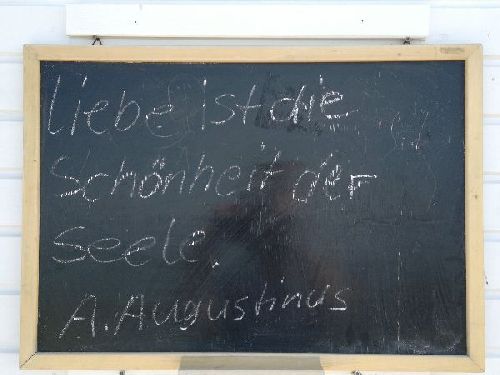 Liebe ist die
Schönheit der
Seele.
A. Augustinus